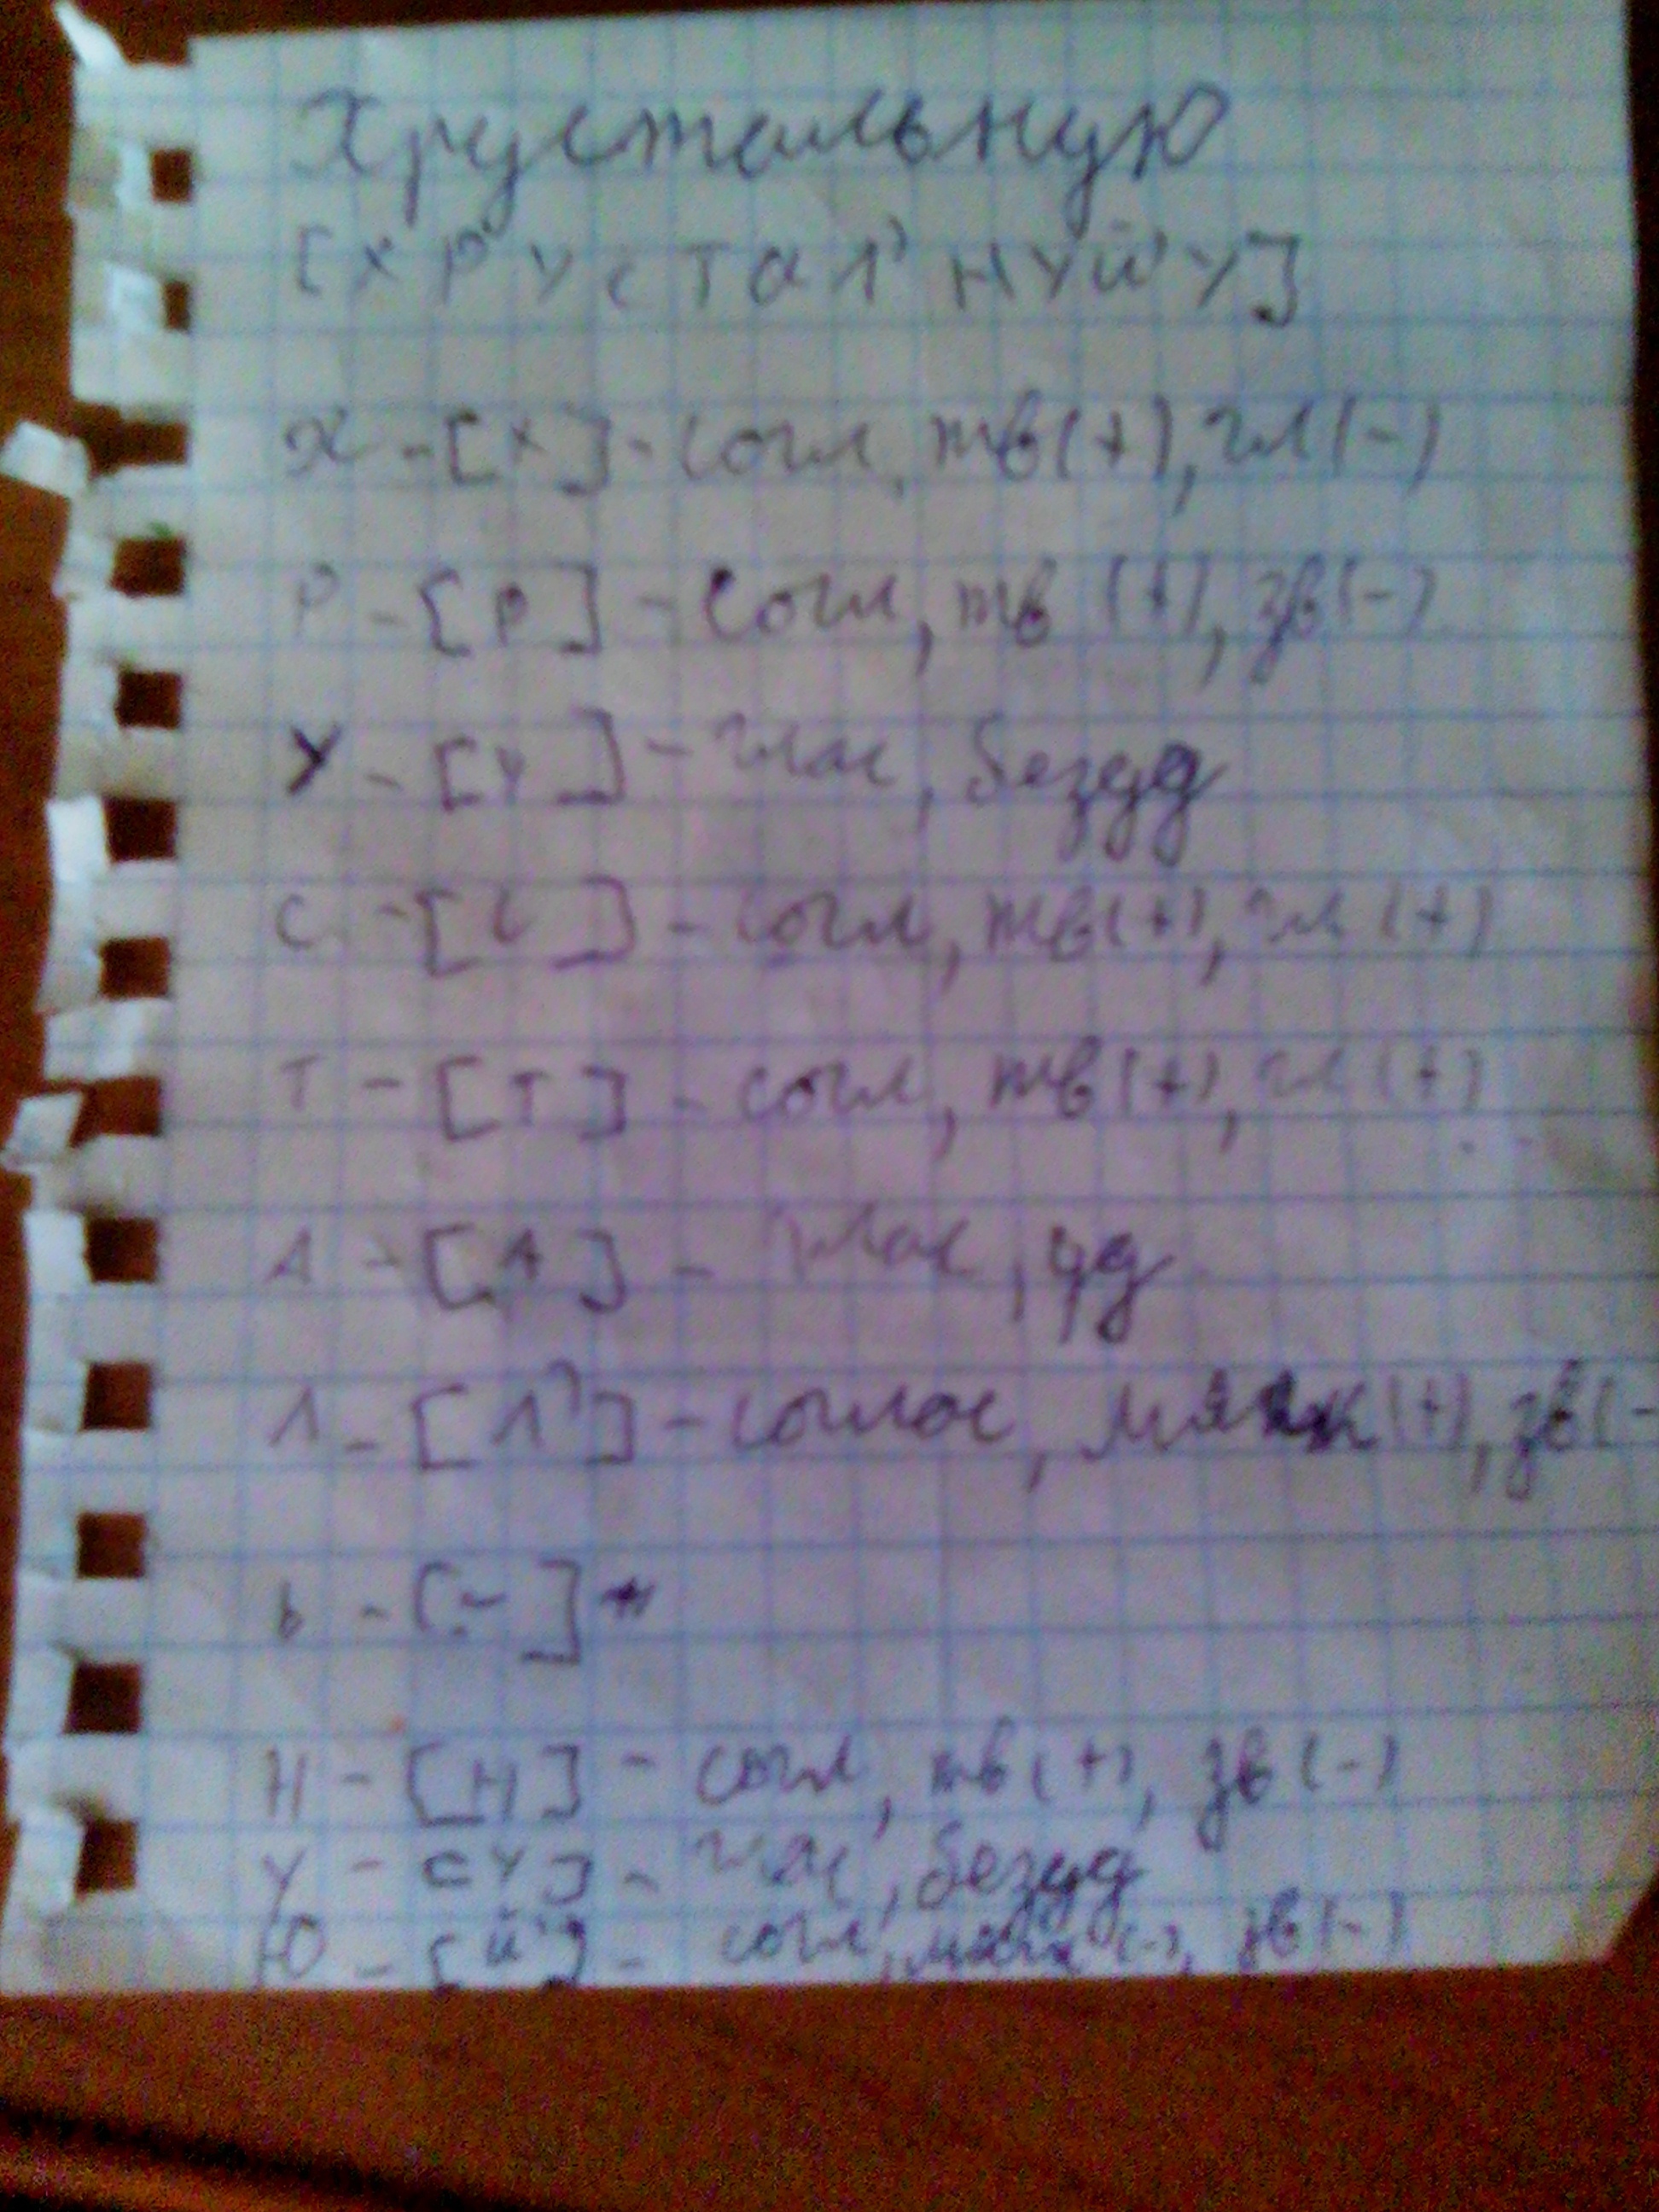 Хрустальную
[хрустал'нуй'у]
х - [х] - согл, тв(+), гл(-)
Р - [р] - согл, тв (+), зв(-)
У - [у] - глас, безуд
С - [с] - согл, тв(+), гл (+)
Т - [т] - согл, тв(+), гл (+)
А - [А] - глас, уд
Л - [Л'] - соглас, мягк(+), зв(-
ь - [-]
Н - [Н] - согл, тв(+), зв(-)
У - [У] - глас, безуд
Ю - [й'] - согл, мягк(-), зв(-)